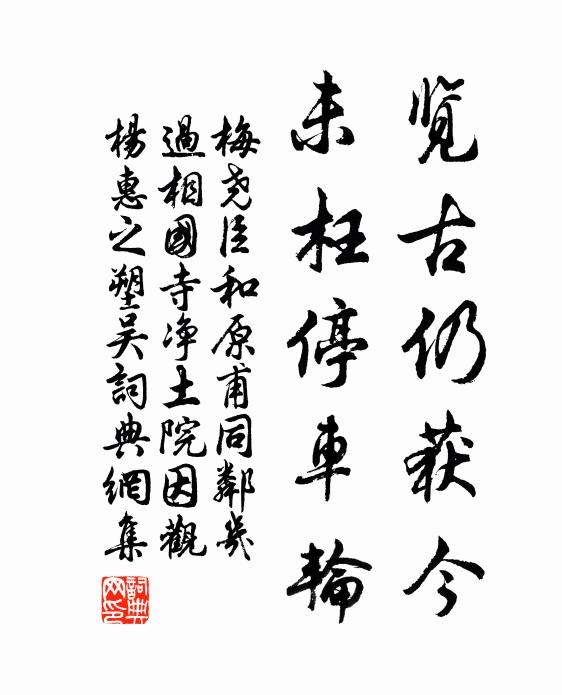 览古仍获今
未枉停車輪
梅尧臣和原甫同鄰幾
過相國寺净土院因觀
楊惠之塑吴詞典網集
詞典网印